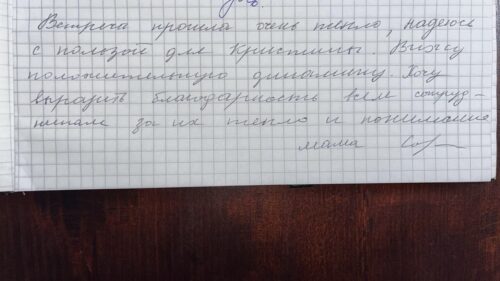 Встреча прошла очень тепло, надеюсь
с пользой для Кристины. Вижу
положительную динамику. Хочу
выразить благодарность всем сотруд-
никам за их тепло и понимание
мама